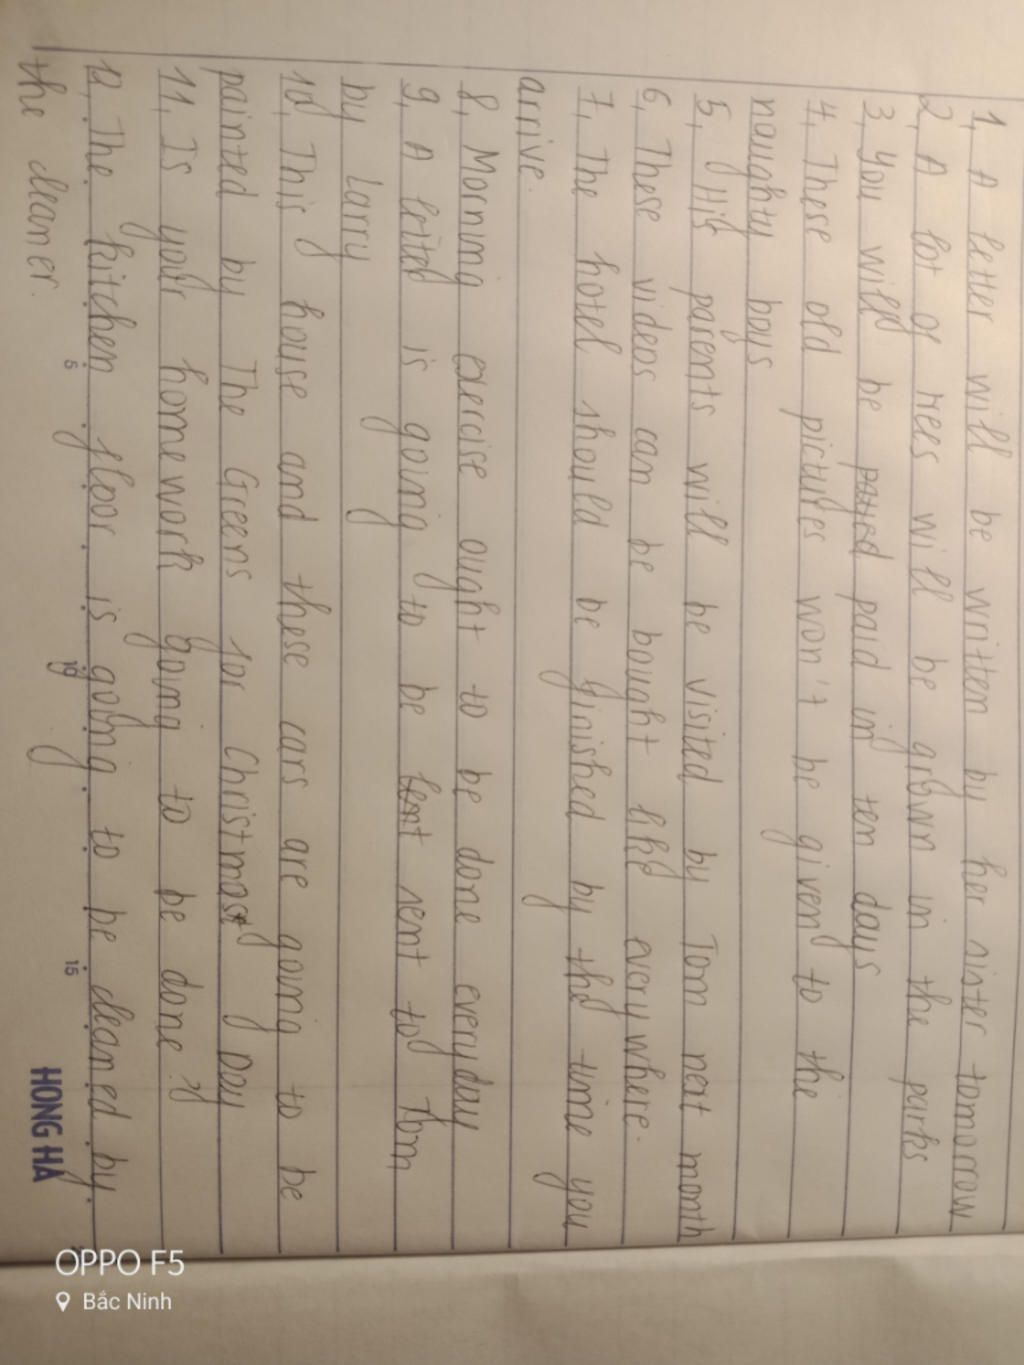 1, A letter will be written by her sister tomorrow
2, A lot of trees will be grown in the parks
3, You will be payed paid in ten days
4, These old pictures won't be given to the
naughty boys
5, His parents will be visited by Tom next month
6, These videos can be bought like everywhere.
7, The hotel should be finished by the time you
arrive.
8, Morning exercise ought to be done everyday
9, A letter is going to be sent to Tom
by Larry
10, This house and these cars are going to be
painted by The Greens for Christmast Day
11, Is your homework going to be done?
12, The kitchen floor is going to be cleaned by
the cleaner.
5 10 15
HONG HA
OPPO F5
Bắc Ninh